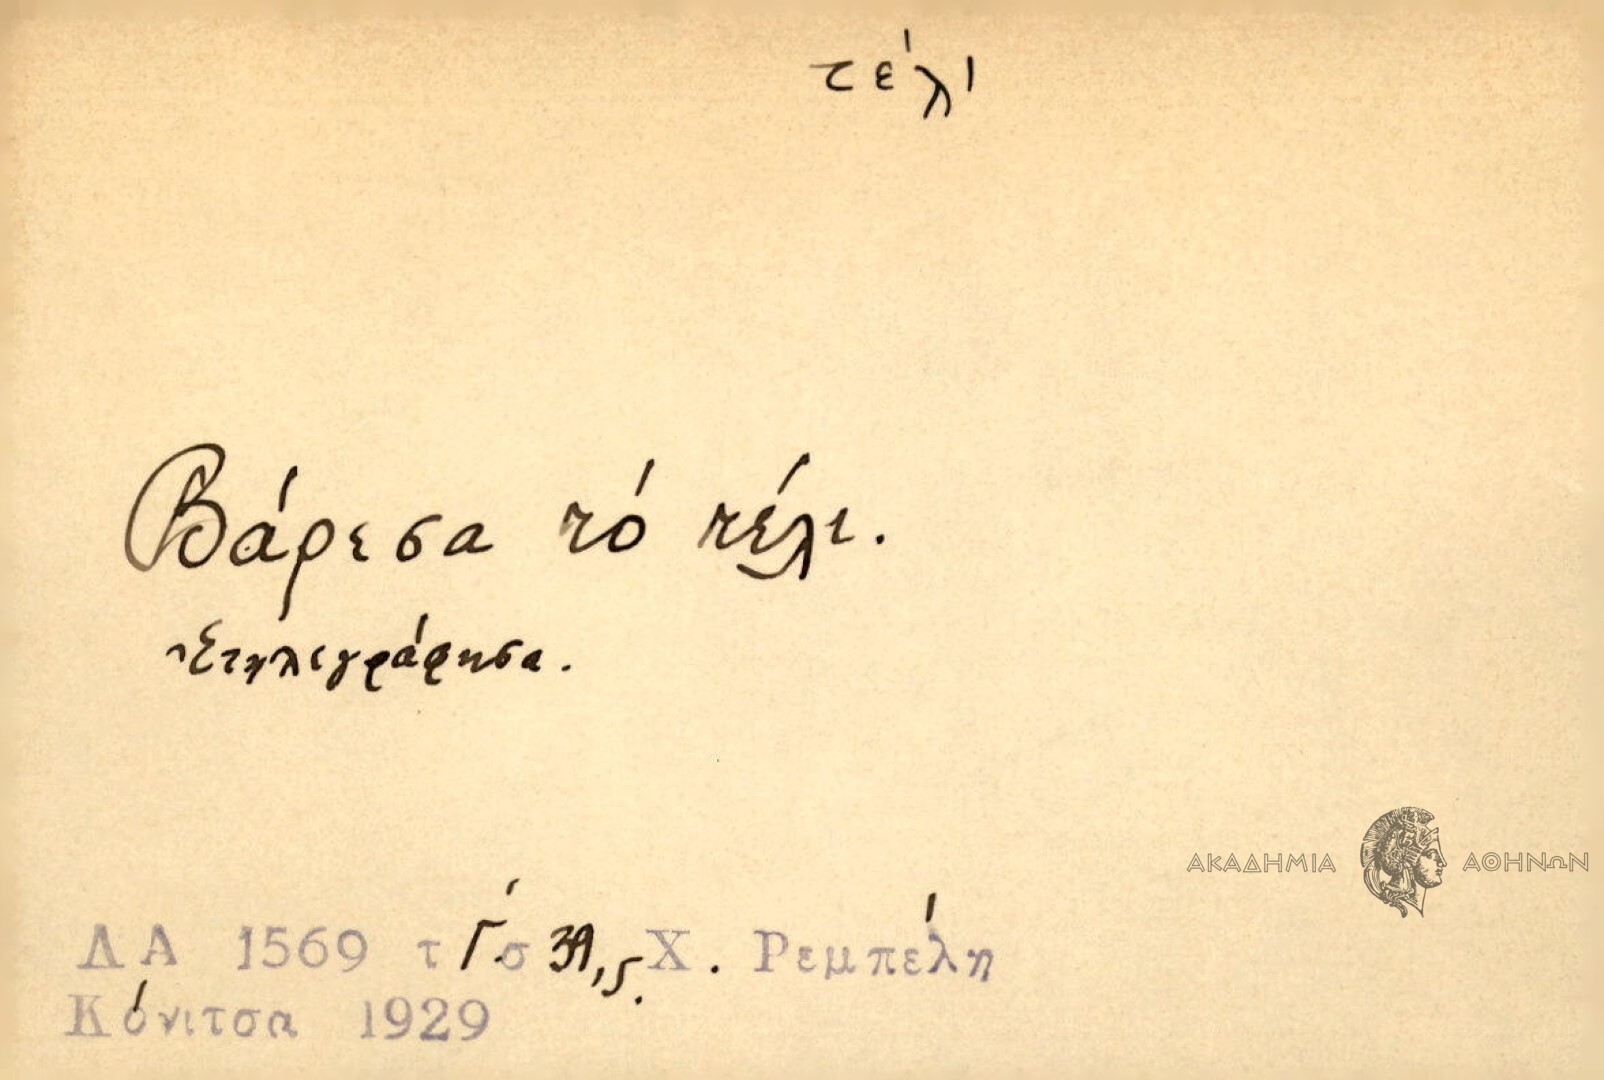 τέλι
Βάρεσα τό τέλι.
Ἐτηλεγράφησα.
ΑΚΑΔΗΜΙΑ ΑΘΗΝΩΝ
ΛΑ 1569 τ Γ΄. σ 39, ς. Χ. Ρεμπέλη
Κόνιτσα 1929